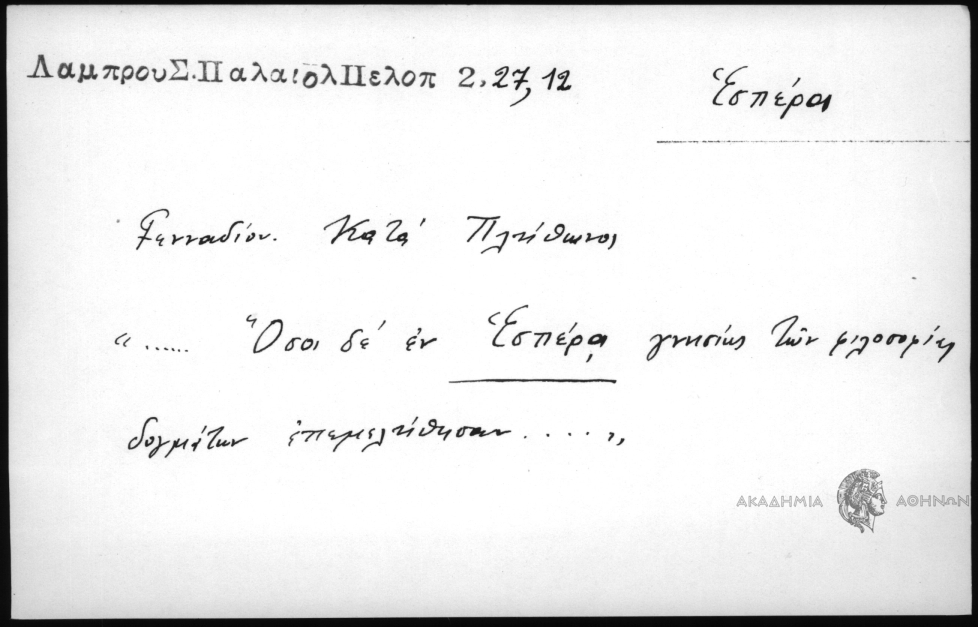 ΛαμπρουΣ.ΠαλαιολΠελοπ 2.27,12
Ἑσπέρα
Γενναδίου. Κατά Πλήθωνος
"...... Ὅσοι δέ ἐν Ἑσπέρᾳ γνησίως τῶν φιλοσοφίας
δογμάτων ἐπεμελήθησαν ....."
ΑΚΑΔΗΜΙΑ ΑΘΗΝΩΝ